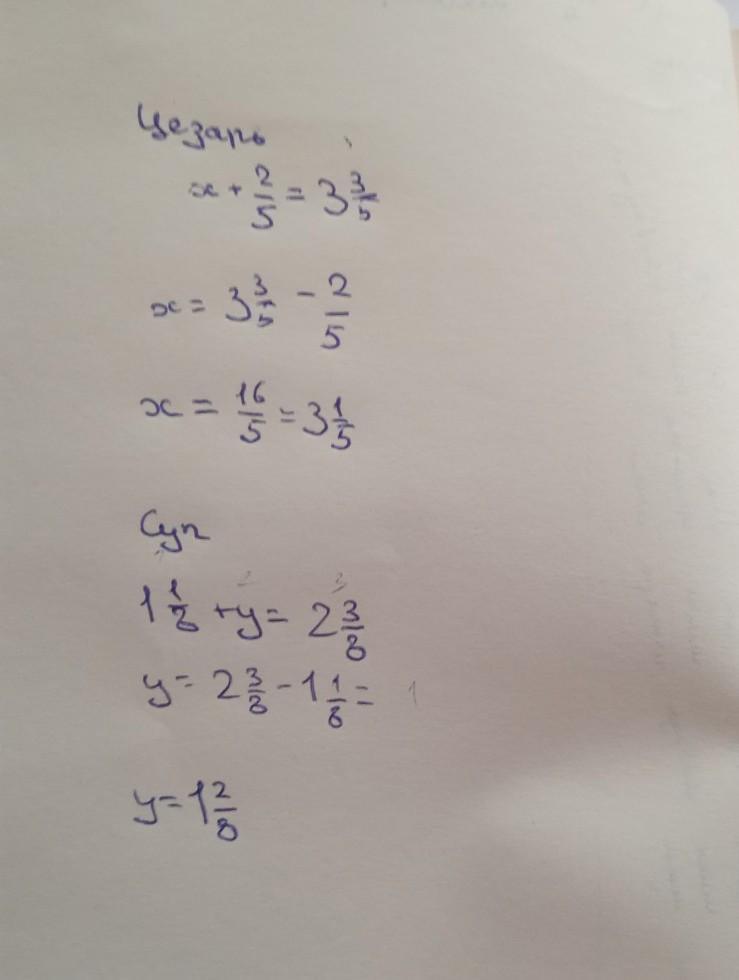 Цезарь
x + 2/5 = 3 3/5
x = 3 3/5 - 2/5
x = 16/5 = 3 1/5
Суп
1 1/8 + y = 2 3/8
y = 2 3/8 - 1 1/8 =
y = 1 2/8